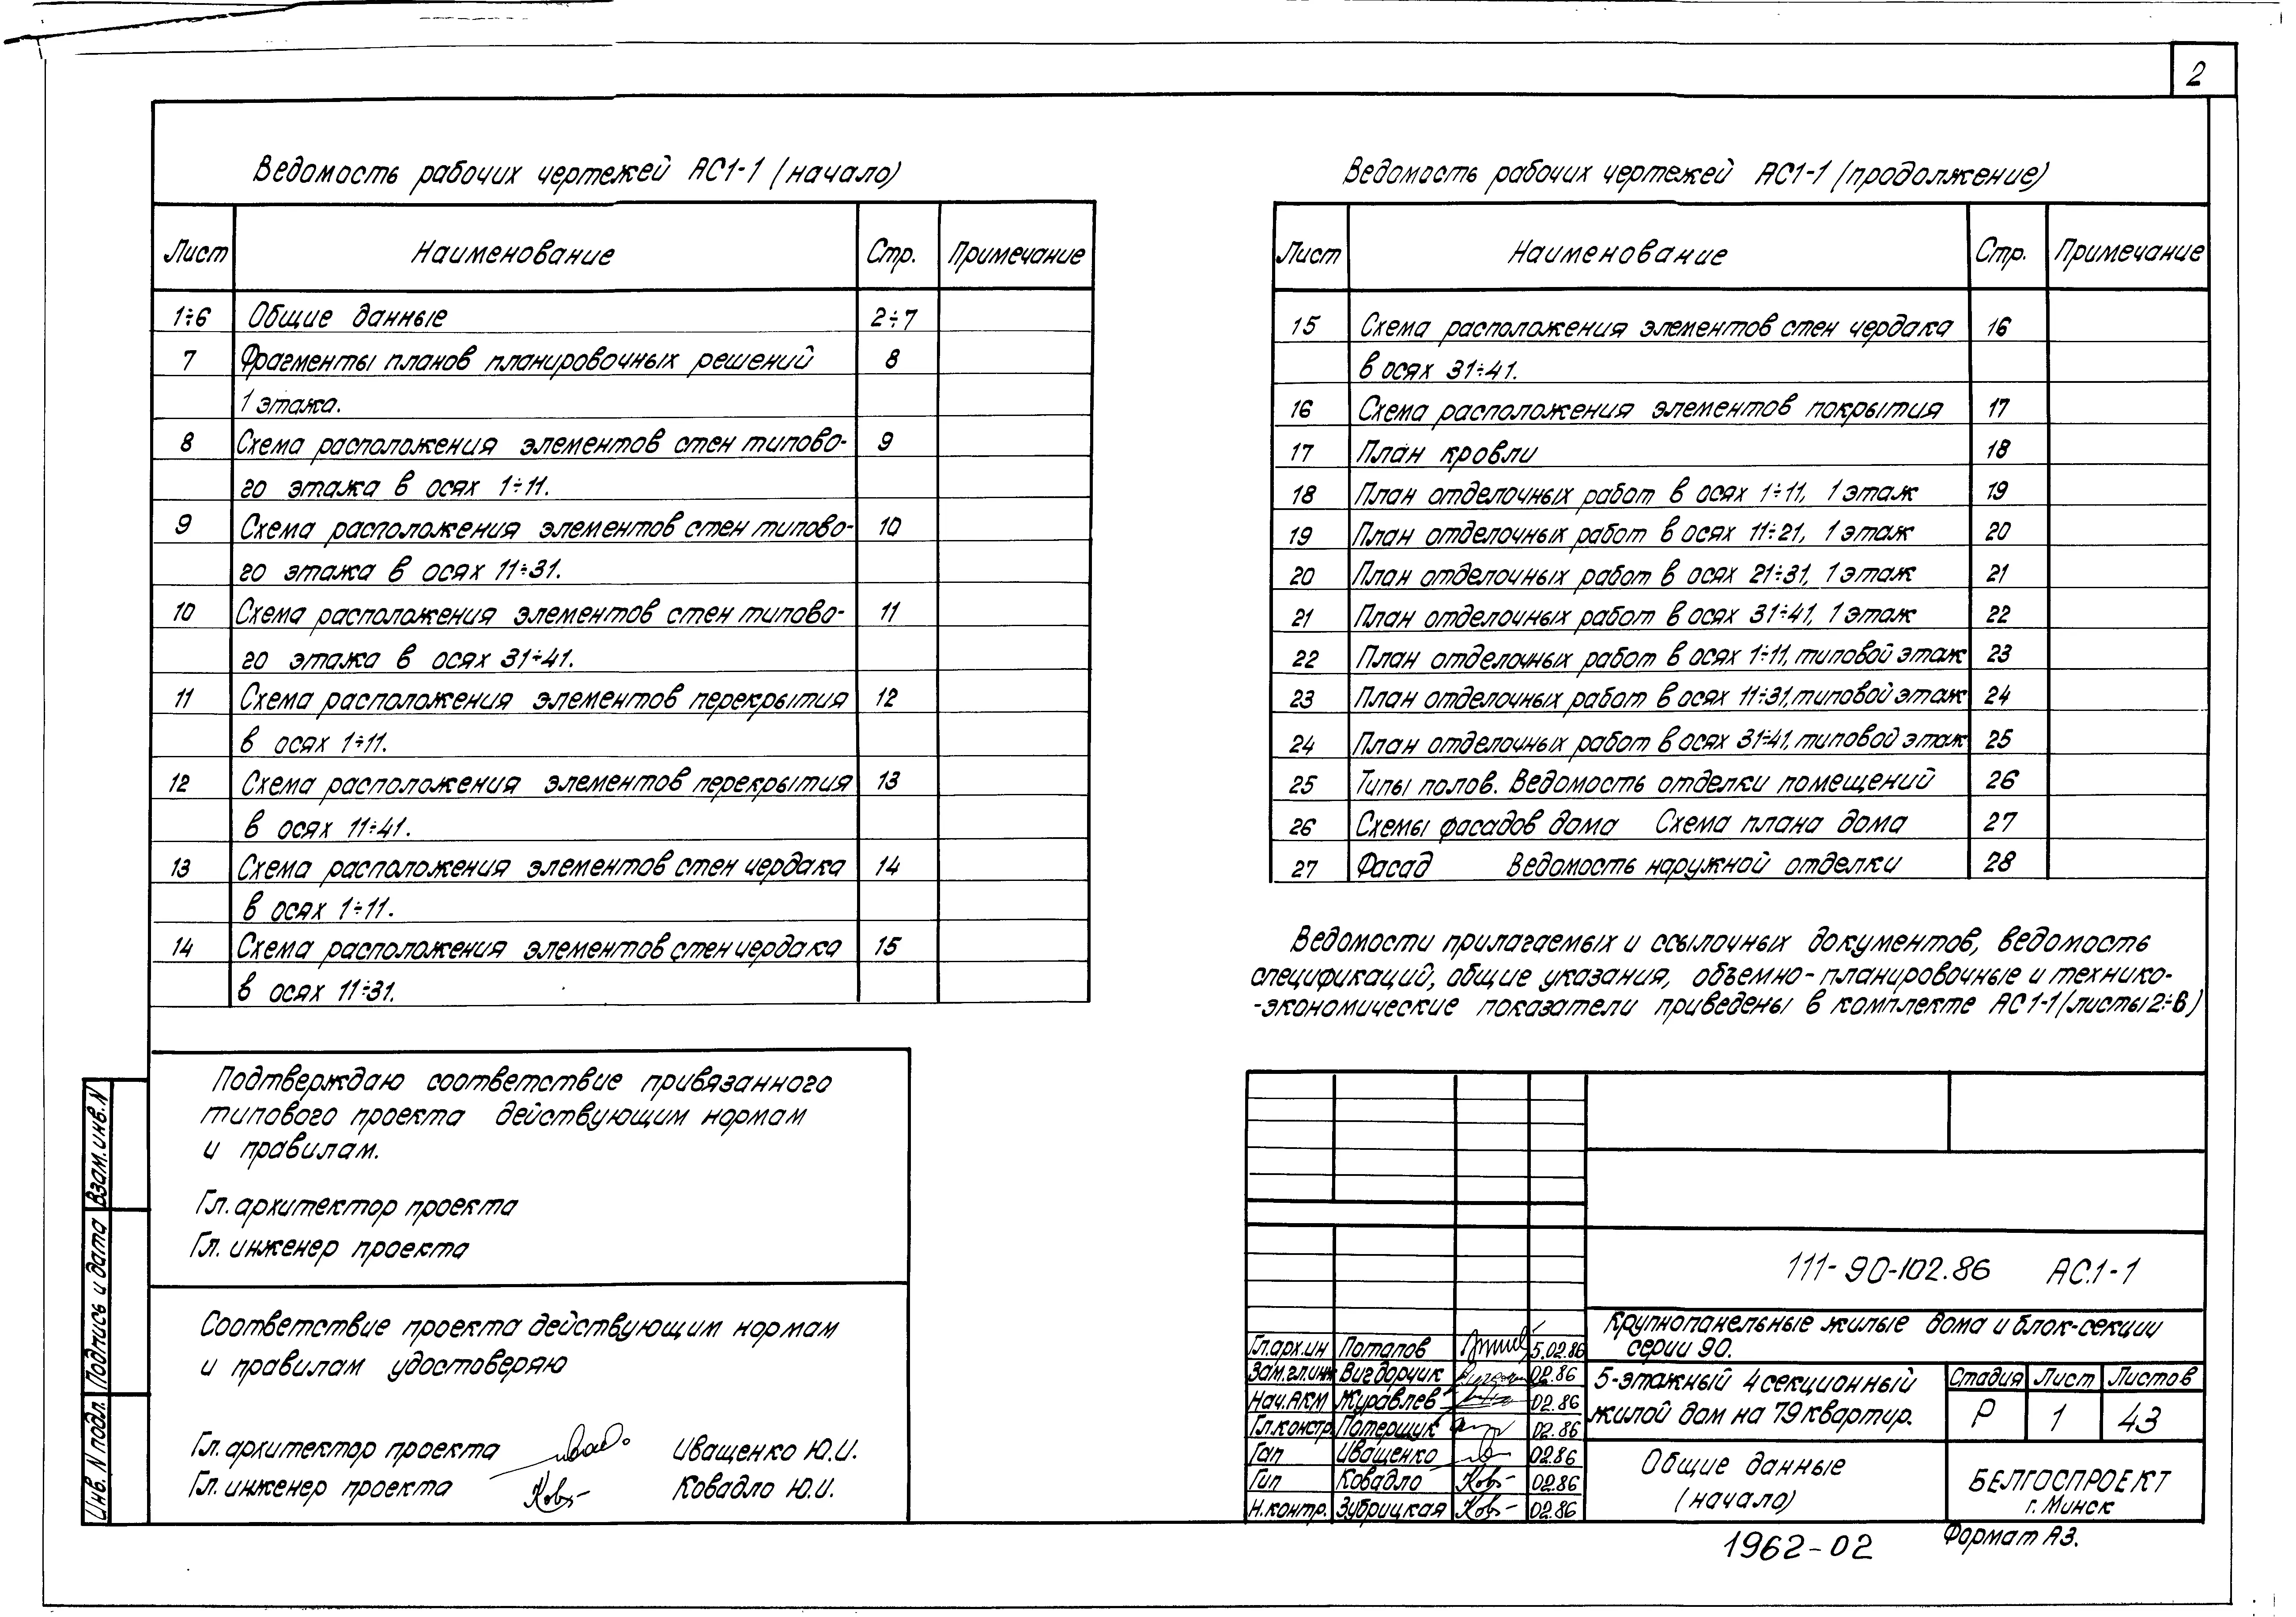 2
Ведомость рабочих чертежей АС1-1 (начало)
Лист Наименование Стр. Примечание
1÷6 Общие данные 2÷7
7 Фрагменты планов планировочных решений 8
1 этажа.
8 Схема расположения элементов стен типово- 9
го этажа в осях 1÷11.
9 Схема расположения элементов стен типово- 10
го этажа в осях 11÷31.
10 Схема расположения элементов стен типово- 11
го этажа в осях 31÷41.
11 Схема расположения элементов перекрытия 12
в осях 1÷11.
12 Схема расположения элементов перекрытия 13
в осях 11÷41.
13 Схема расположения элементов стен чердака 14
в осях 1÷11.
14 Схема расположения элементов стен чердака 15
в осях 11÷31.
Ведомость рабочих чертежей АС1-1 (продолжение)
Лист Наименование Стр. Примечание
15 Схема расположения элементов стен чердака 16
в осях 31÷41.
16 Схема расположения элементов покрытия 17
17 План кровли 18
18 План отделочных работ в осях 1÷11, 1 этаж 19
19 План отделочных работ в осях 11÷21, 1 этаж 20
20 План отделочных работ в осях 21÷31, 1 этаж 21
21 План отделочных работ в осях 31÷41, 1 этаж 22
22 План отделочных работ в осях 1÷11, типовой этаж 23
23 План отделочных работ в осях 11÷31, типовой этаж 24
24 План отделочных работ в осях 31÷41, типовой этаж 25
25 Типы полов. Ведомость отделки помещений 26
26 Схемы фасадов дома Схема плана дома 27
27 Фасад Ведомость наружной отделки 28
Ведомости прилагаемых и ссылочных документов, ведомость
спецификаций, общие указания, объемно-планировочные и технико-
-экономические показатели приведены в комплекте АС1-1 (листы 2÷6)
Подтверждаю соответствие привязанного
типового проекта действующим нормам
и правилам.
Гл. архитектор проекта
Гл. инженер проекта
Соответствие проекта действующим нормам
и правилам удостоверяю
Гл. архитектор проекта Иващенко Ю.И.
Гл. инженер проекта Ковадло Ю.И.
Инв. N подл. Подпись и дата Взам. инв. N
111-90-102.86 АС.1-1
Крупнопанельные жилые дома и блок-секции
серии 90.
Гл.арх.ин Потапов 5.02.86
Зам.гл.инж Вигдорчик 02.86
Нач.АКМ Журавлев 02.86
Гл.констр. Потерщук 02.86
Гап Иващенко 02.86
Гип Ковадло 02.86
Н.контр. Зубрицкая 02.86
5-этажный 4 секционный
жилой дом на 79 квартир.
Стадия Лист Листов
Р 1 43
Общие данные
(начало)
БЕЛГОСПРОЕКТ
г. Минск
1962-02
Формат А3.